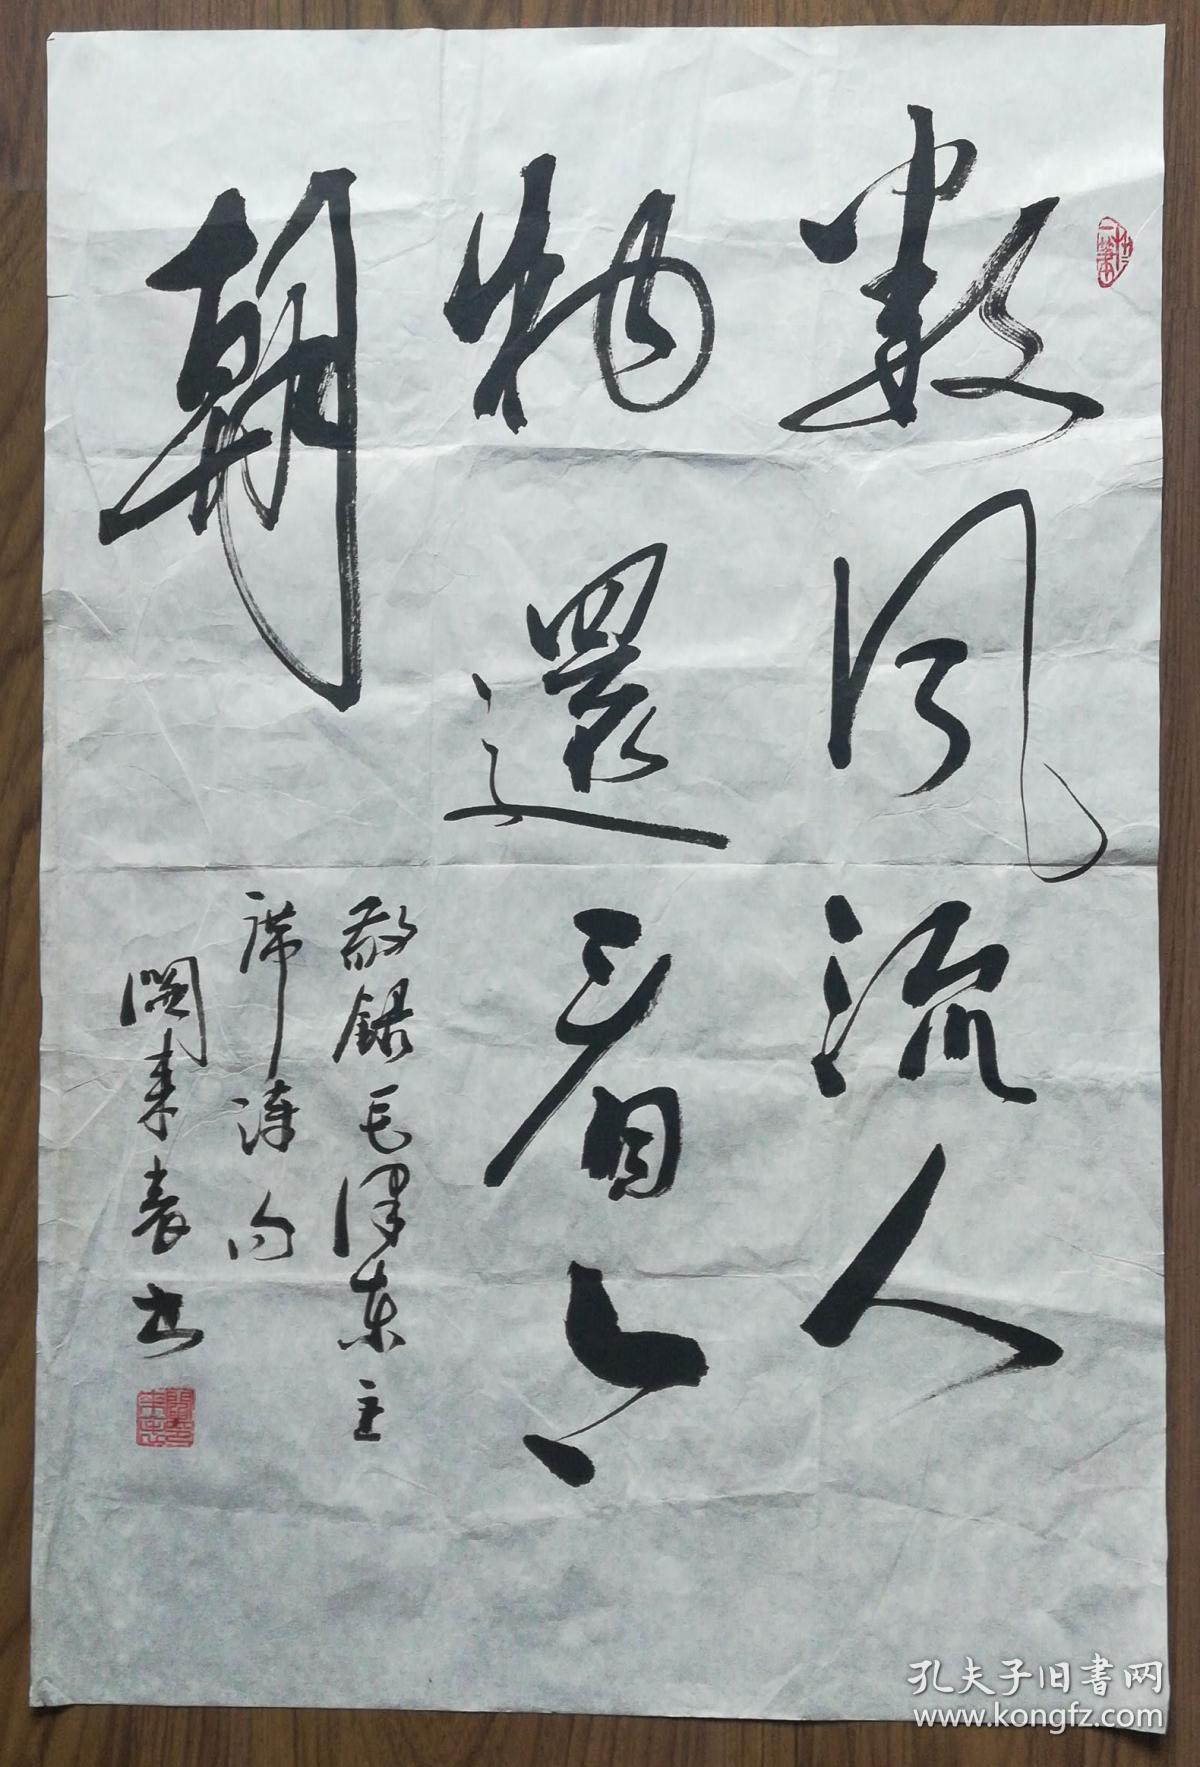 數風流人
物還看今
朝
敬録毛澤東主
席詩句
闗來春书
孔夫子旧書网
www.kongfz.com